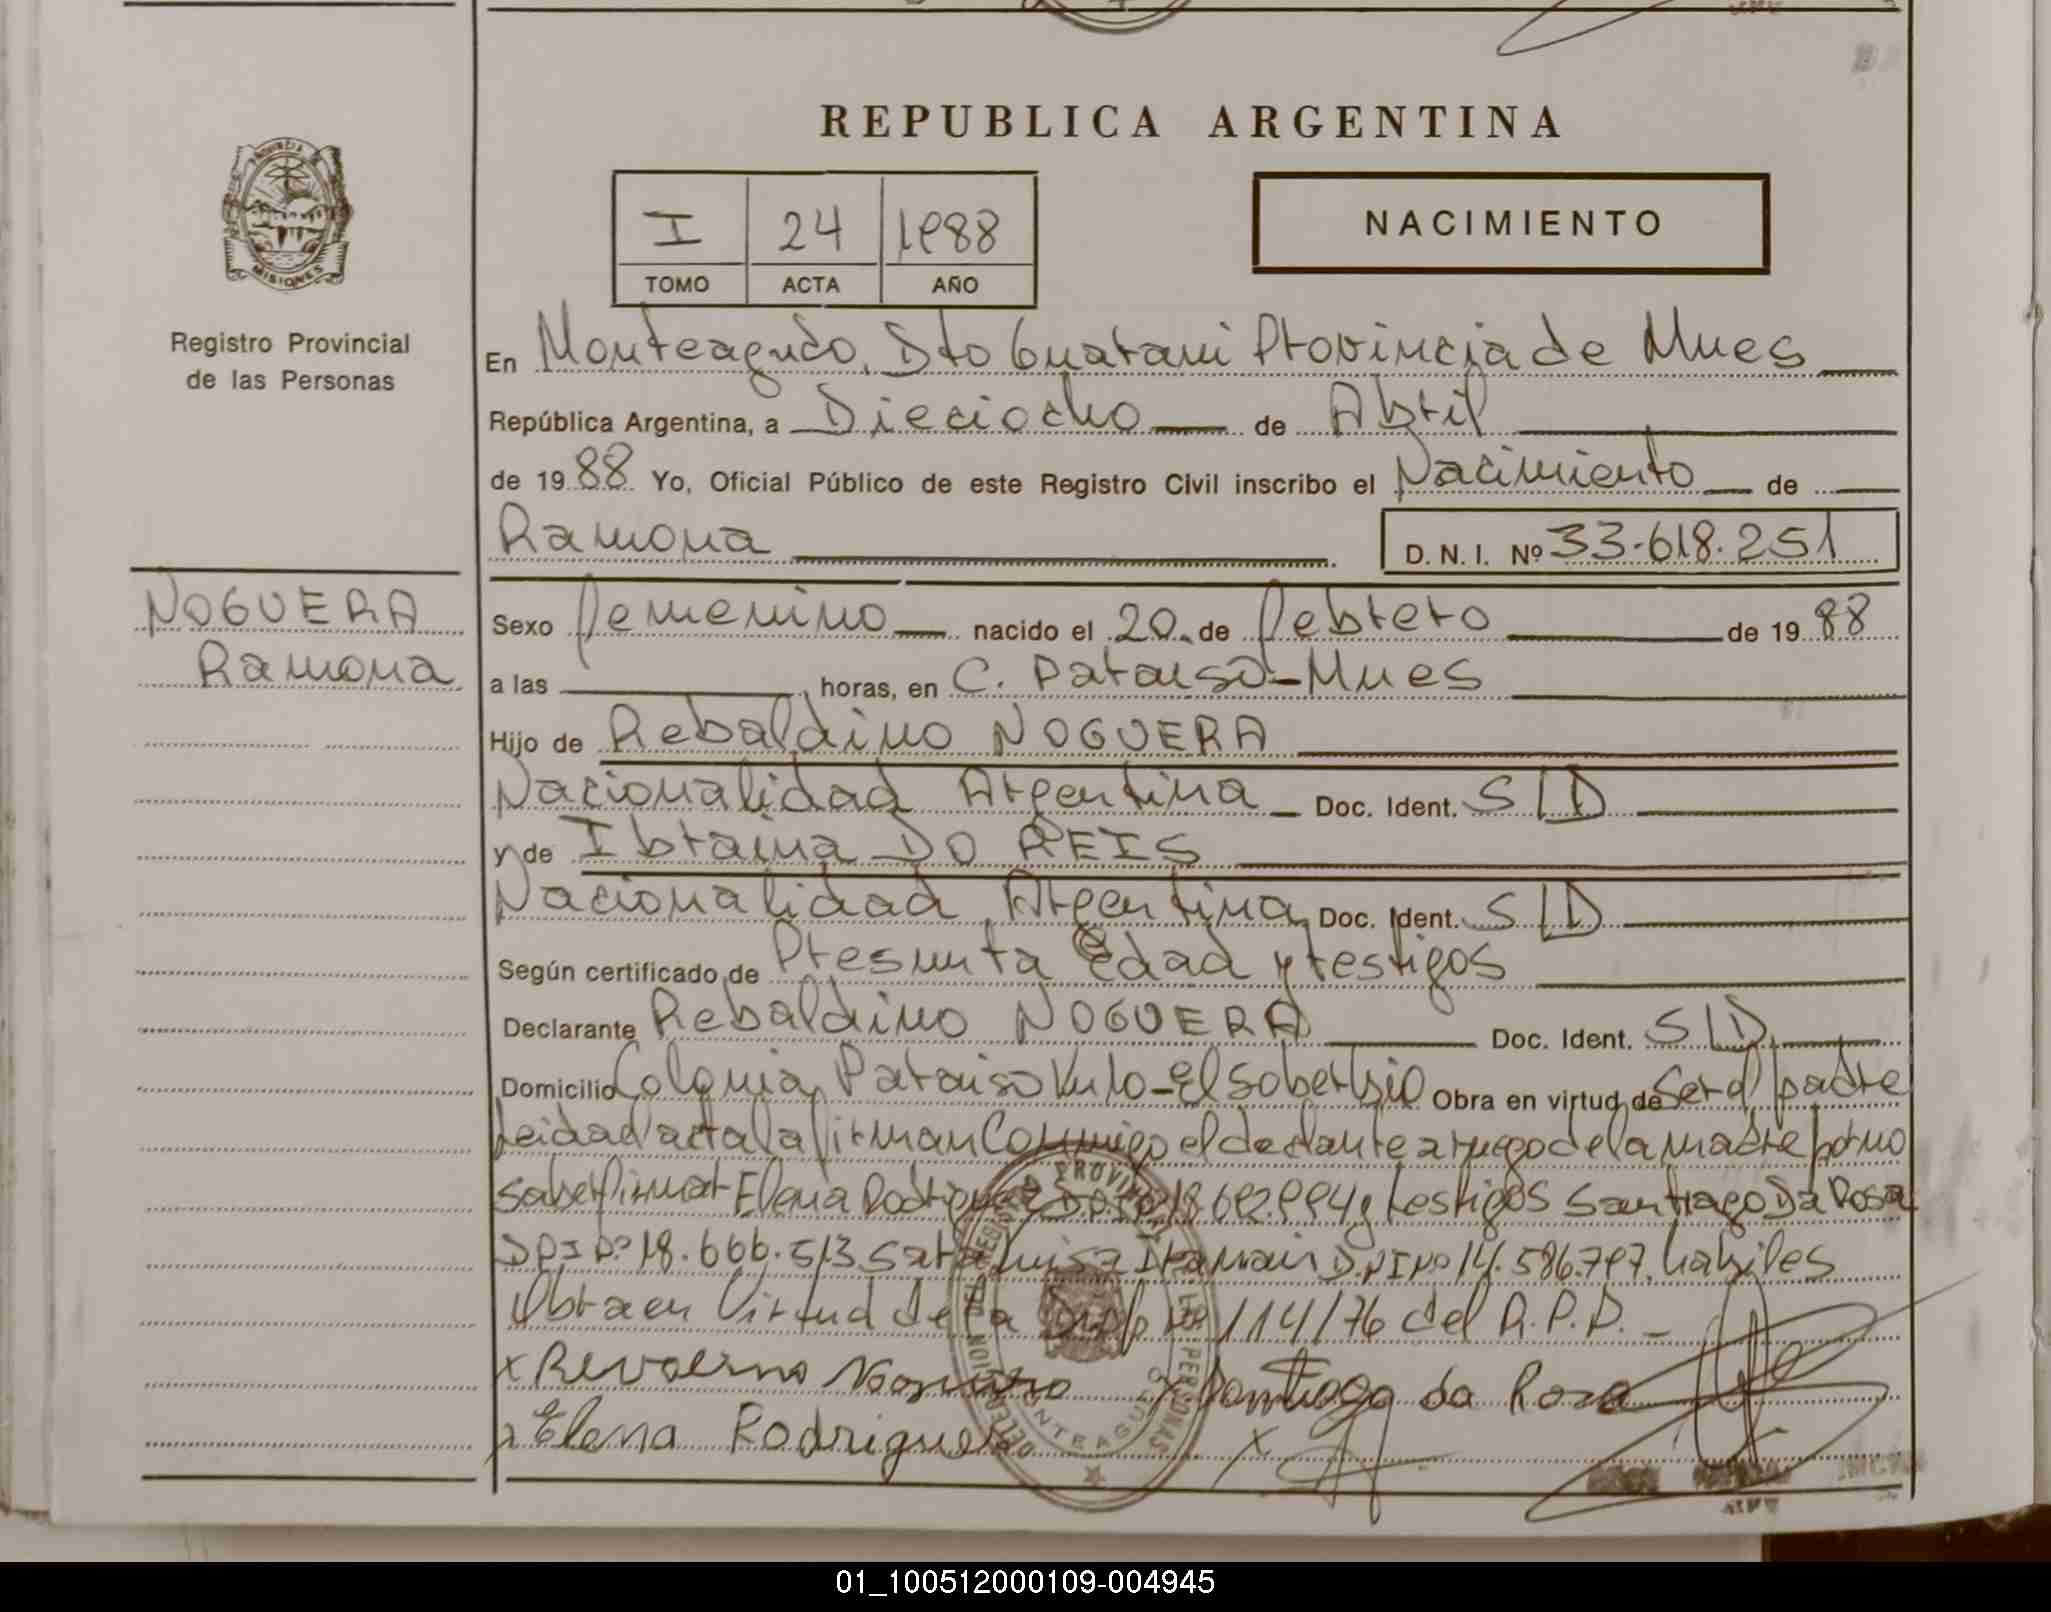 REPUBLICA ARGENTINA
PROVINCIA DE
MISIONES
Registro Provincial
de las Personas
I 24 1988
TOMO ACTA AÑO
NACIMIENTO
En Monteagudo, Dto Guarani Provincia de Mnes
República Argentina, a Dieciocho de Abril
de 1988 Yo, Oficial Público de este Registro Civil inscribo el Nacimiento de
Ramona D. N. I. Nº 33.618.251
NOGUERA
Ramona
Sexo femenino nacido el 20 de febrero de 1988
a las horas, en C. Paraiso-Mnes
Hijo de Rebaldino NOGUERA
Nacionalidad Argentina Doc. Ident. S/D
y de Ibraina DO REIS
Nacionalidad Argentina Doc. Ident. S/D
Según certificado de Presunta Edad y testigos
Declarante Rebaldino NOGUERA Doc. Ident. S/D
Domicilio Colonia Paraiso - El soberbio Obra en virtud de Ser el padre
Leida el acta la firman Conmigo el declante a ruego de la madre por no
saber firmar Elena Rodriguez 18.692.994 y testigos Santiago Da Rosa
DNI Nº 18.666.513 Luisa D.NI Nº 14.586.797. habiles
Obra en Virtud de la Disp Nº 114/76 del R.P.P.
x Revaldino Noguera x Santiago da Roza
x Elena Rodriguez x
01_100512000109-004945